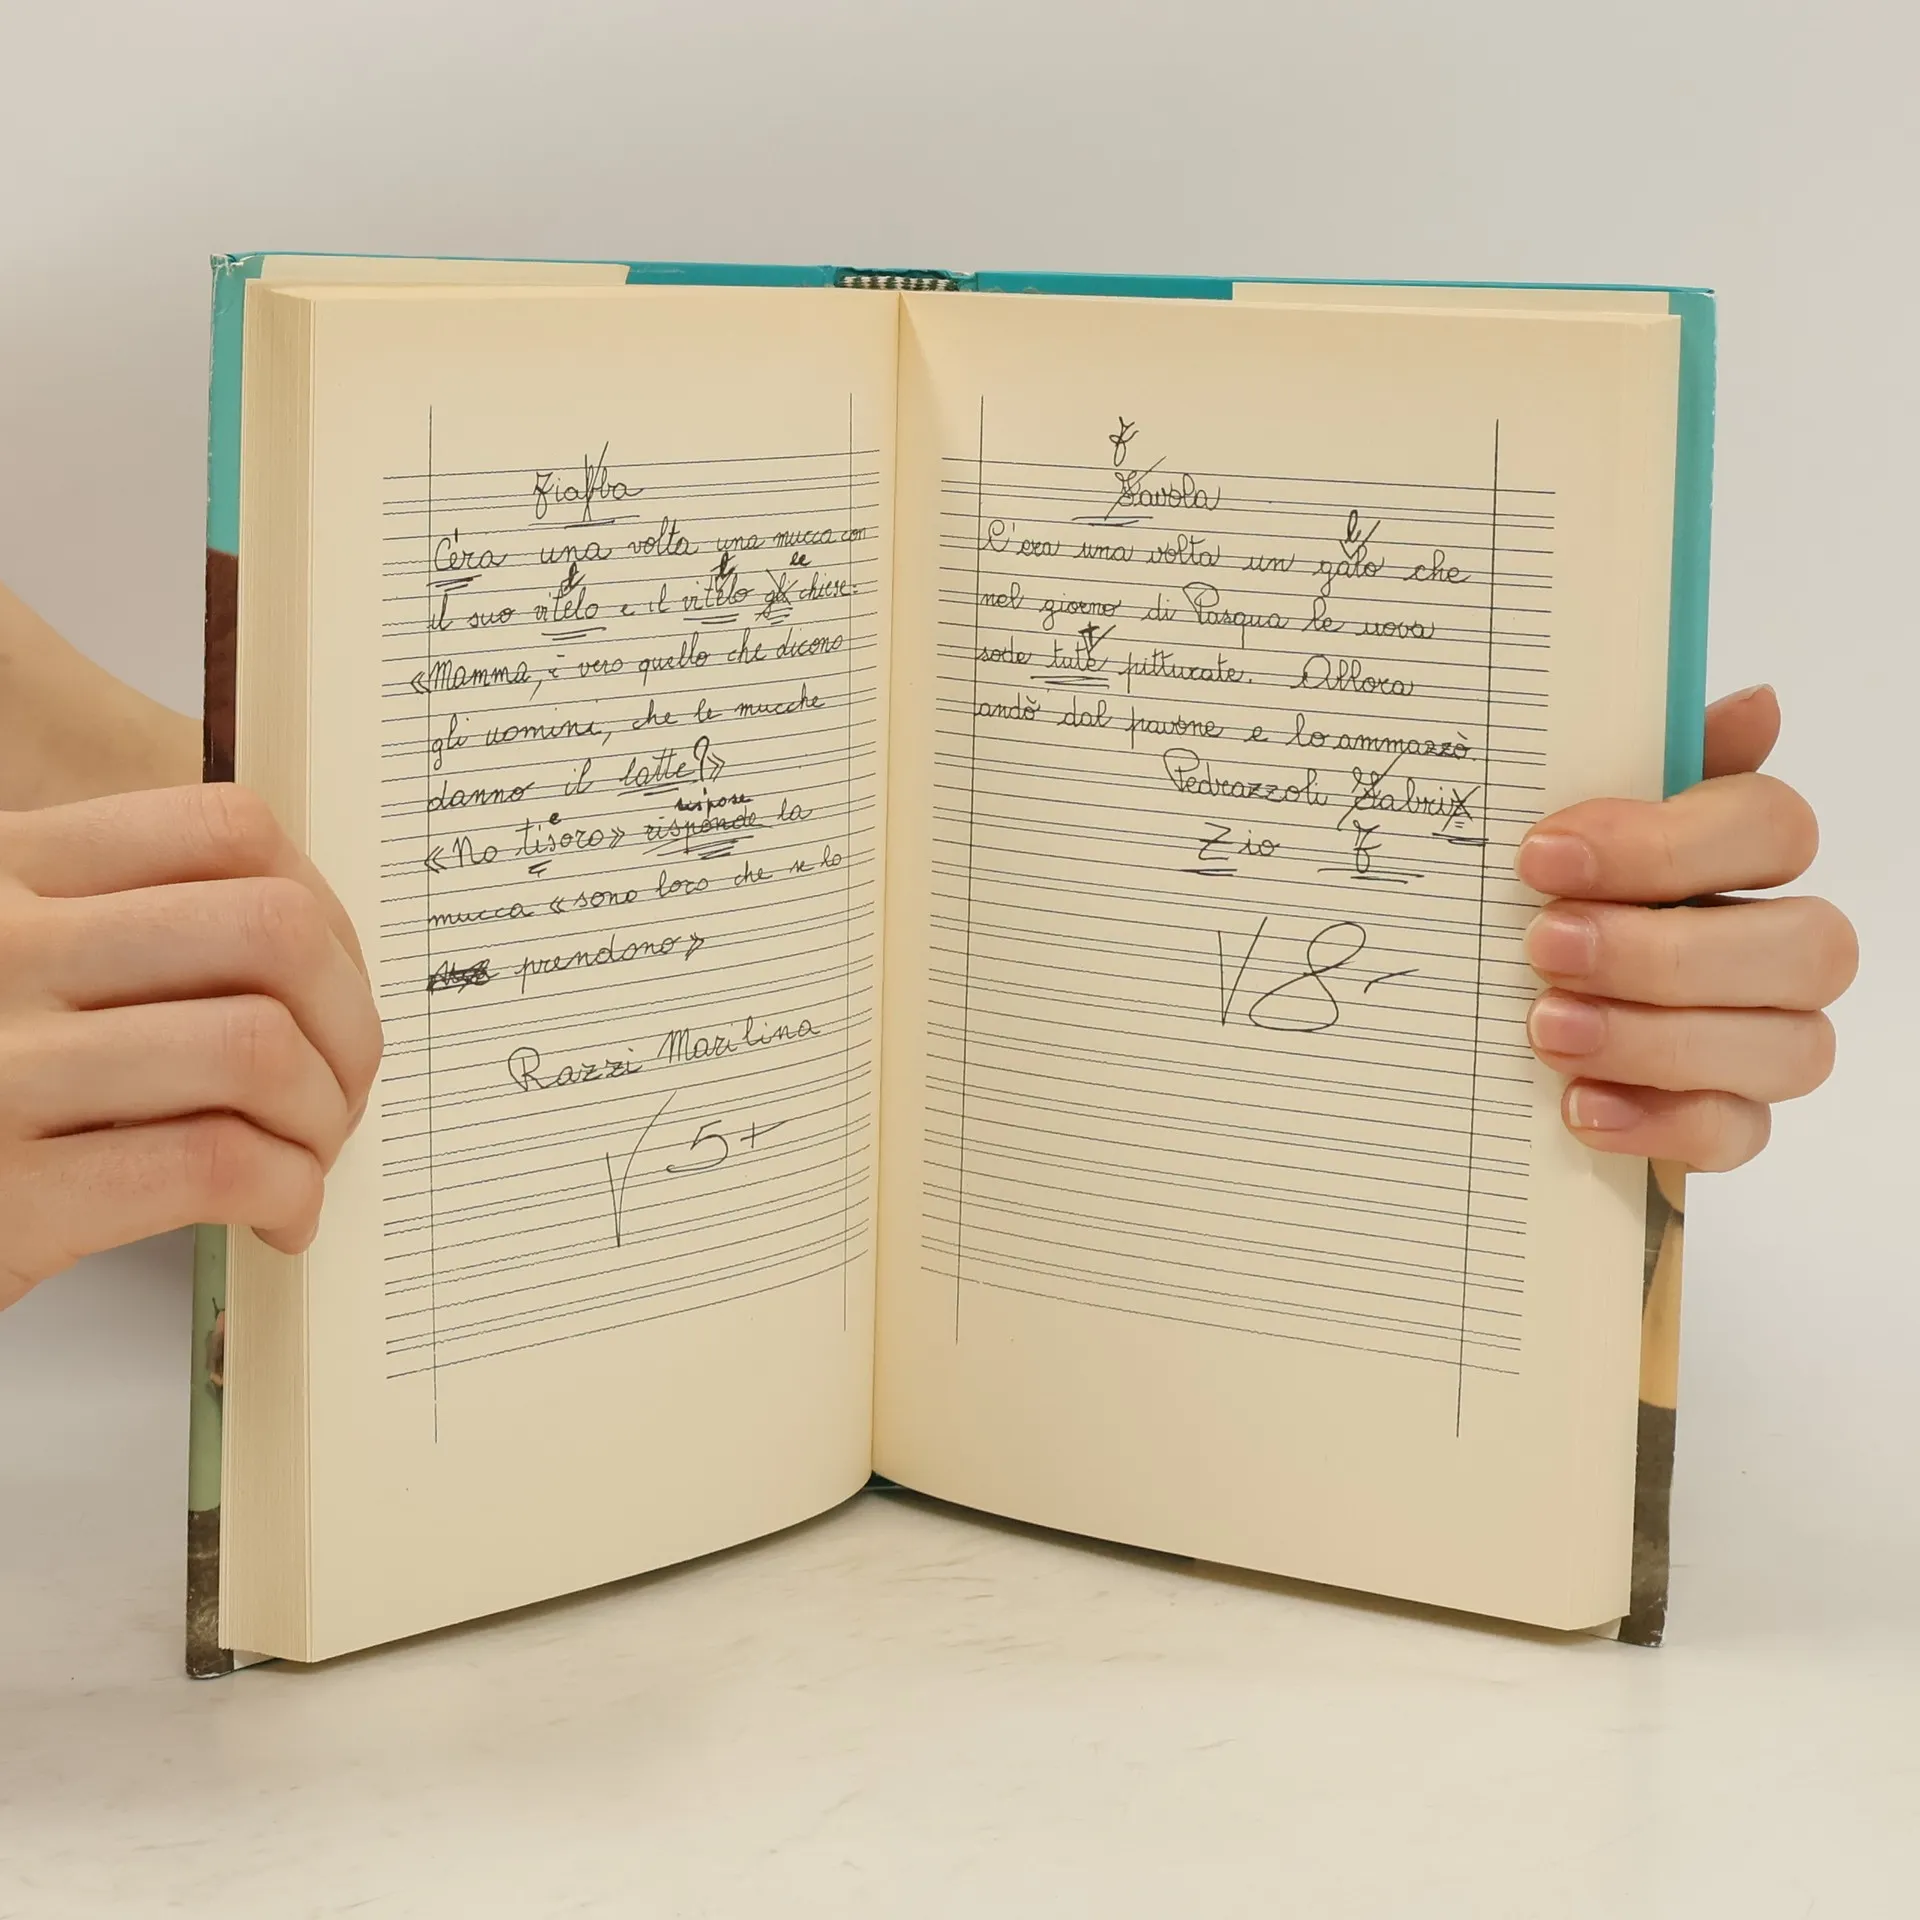 Fiabba
C'era una volta una mucca con
l l le
il suo vitelo e il vitelo gli chiese:
«Mamma, è vero quello che dicono
gli uomini, che le mucche
danno il latte?»
e rispose
«No tisoro» risponde la
mucca «sono loro che se lo
prendono»
Razzi Marilina
5+
F
Favola
l
C'era una volta un galo che
nel giorno di Pasqua le uova
t
sode tute pitturate. Allora
andò dal pavone e lo ammazzò.
Pedrazzoli Fabri
Zio F
8-